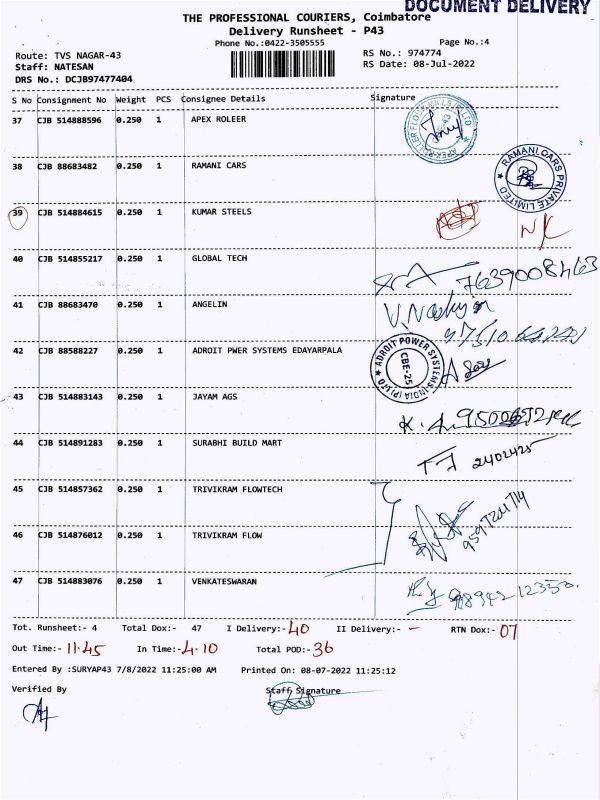 DOCUMENT DELIVERY
THE PROFESSIONAL COURIERS, Coimbatore
Delivery Runsheet - P43
Phone No.:0422-3505555 Page No.:4
Route: TVS NAGAR-43 RS No.: 974774
Staff: NATESAN RS Date: 08-Jul-2022
DRS No.: DCJB97477404
S No Consignment No Weight PCS Consignee Details Signature
37 CJB 514888596 0.250 1 APEX ROLEER
38 CJB 88683482 0.250 1 RAMANI CARS
RAMANI CARS PRIVATE LIMITED
39 CJB 514884615 0.250 1 KUMAR STEELS
40 CJB 514855217 0.250 1 GLOBAL TECH
7639008463
41 CJB 88683470 0.250 1 ANGELIN
42 CJB 88588227 0.250 1 ADROIT PWER SYSTEMS EDAYARPALA
ADROIT POWER SYSTEMS INDIA (P) LTD
CBE-25
43 CJB 514883143 0.250 1 JAYAM AGS
44 CJB 514891283 0.250 1 SURABHI BUILD MART
2402425
45 CJB 514857362 0.250 1 TRIVIKRAM FLOWTECH
46 CJB 514876012 0.250 1 TRIVIKRAM FLOW
47 CJB 514883076 0.250 1 VENKATESWARAN
Tot. Runsheet:- 4 Total Dox:- 47 I Delivery:- 40 II Delivery:- - RTN Dox:- 07
Out Time:- 11.45 In Time:- 4.10 Total POD:- 36
Entered By :SURYAP43 7/8/2022 11:25:00 AM Printed On: 08-07-2022 11:25:12
Verified By Staff Signature